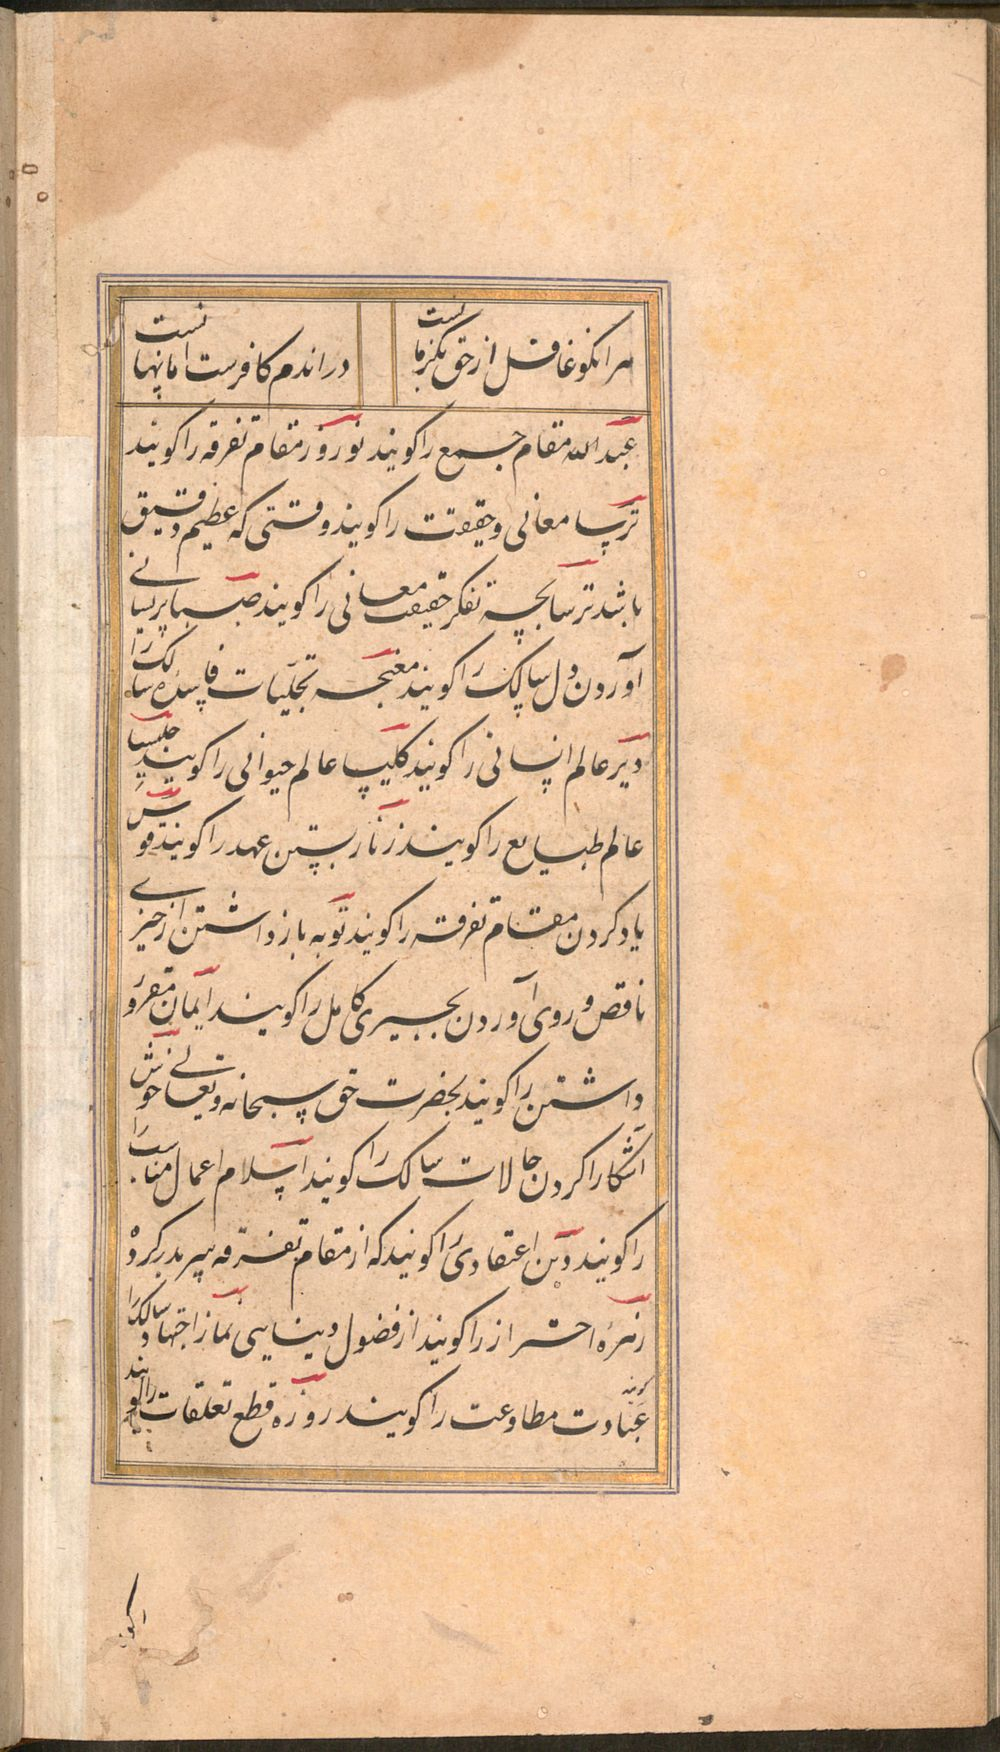 هر انکو غافل از حق یکزمانست
در اندم کافرست اما نهانست
عبد الله مقام جمع را کویند نوروز مقام تفرقه را کویند
ترسا معانی و حقیقت را کویند وقتی که عظیم دقیق
باشد ترسابچه تفکر حقیقت معانی را کویند صبا پریشانی
آوردن دل سالک را کویند مغبچه تجلیات فاسده سالک را
دیر عالم انسانی را کویند کلیسا عالم حیوانی را کویند چلیپا
عالم طبایع را کویند زنار بستن عهد را کویند ناقوس
یاد کردن مقام تفرقه را کویند توبه باز داشتن از چیزی
ناقص و روی آوردن بچیزی کامل را کویند ایمان مقر و
داشتن را کویند بحضرت حق سبحانه و تعالی
آشکارا کردن حالات سالک را کویند اسلام اعمال
را کویند دین اعتقادی را کویند که از مقام تفرقه سر بدر کرده
زهره احتراز را کویند از فضول دنیایی نماز اجتهاد سالک را
عبادت مطاوعت را کویند روزه قطع تعلقات را کویند